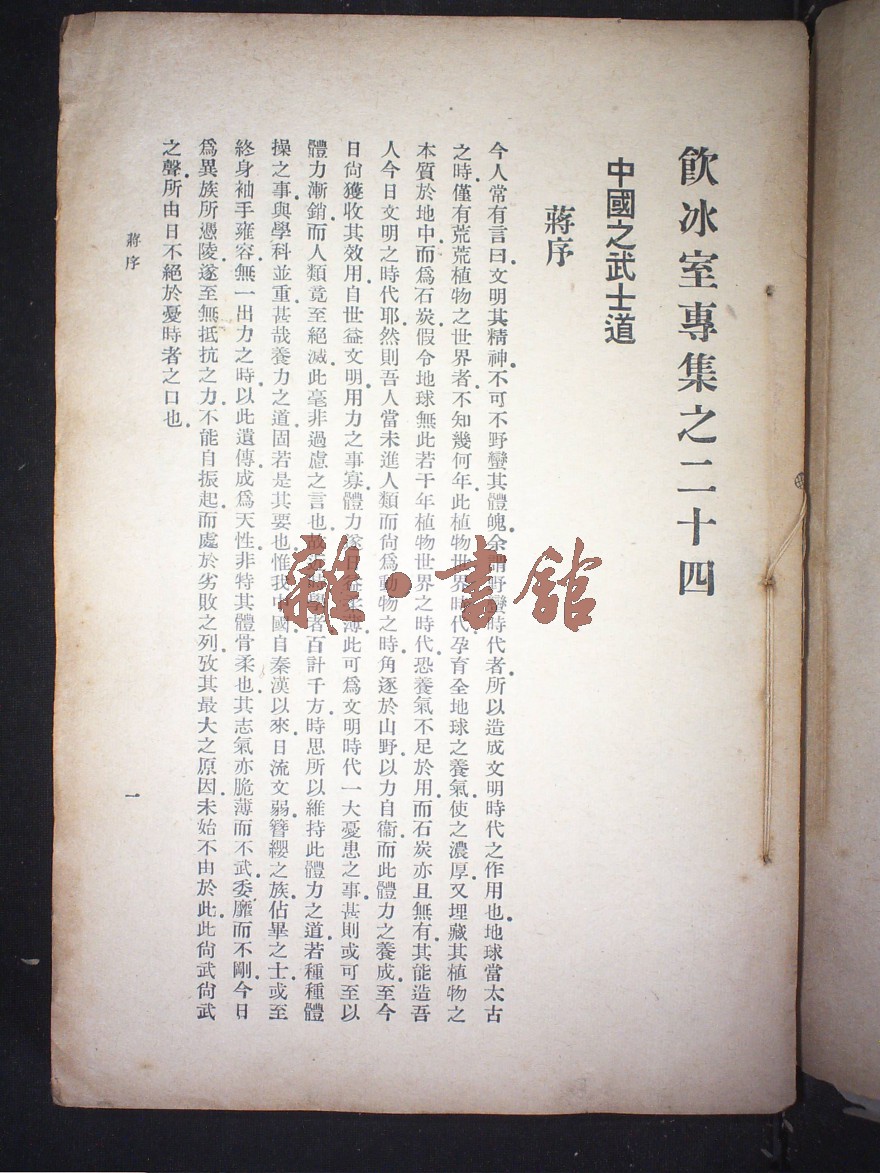 飮冰室專集之二十四
中國之武士道
蔣序
今人常有言曰文明其精神不可不野蠻其體魄余謂野蠻時代者所以造成文明時代之作用也地球當太古
之時僅有荒荒植物之世界者不知幾何年此植物世界時代孕育全地球之養氣使之濃厚又埋藏其植物之
本質於地中而爲石炭假令地球無此若干年植物世界之時代恐養氣不足於用而石炭亦且無有其能造吾
人今日文明之時代耶然則吾人當未進人類而尙爲動物之時角逐於山野以力自衞而此體力之養成至今
日尙獲收其效用自世益文明用力之事寡體力遂日益薄此可爲文明時代一大憂患之事甚則或可至以
體力漸銷而人類竟至絕滅此毫非過慮之言也者百計千方時思所以維持此體力之道若種種體
操之事與學科並重甚哉養力之道固若是其要也惟我中國自秦漢以來日流文弱簪纓之族佔畢之士或至
終身袖手雍容無一出力之時以此遺傳成爲天性非特其體骨柔也其志氣亦脆薄而不武委靡而不剛今日
爲異族所憑陵遂至無抵抗之力不能自振起而處於劣敗之列攷其最大之原因未始不由於此此尙武尙武
之聲所由日不絕於憂時者之口也
蔣序
一
雜·書館